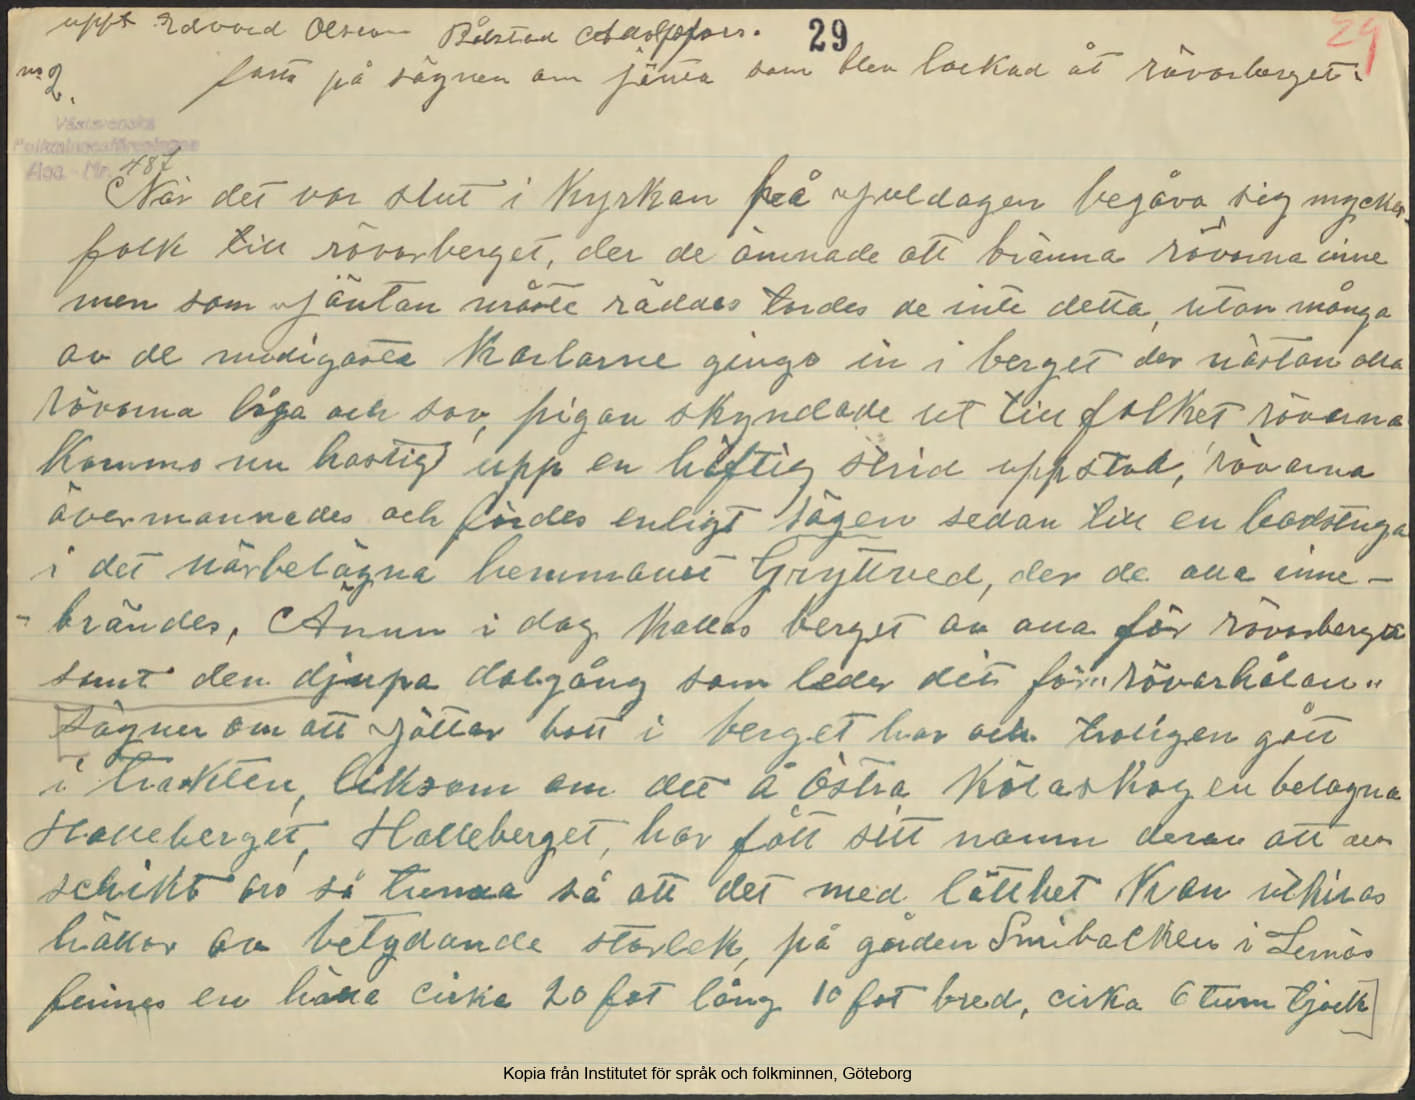 uppt Edvard Olsson Bålstad Adolfsfors.
29
29
no 2.
forts på sägnen om jänta som blev lockad åt rövarberget.
Västsvenska
Folkminnesföreningen
Acc. Nr. 487
När det var slut i Kyrkan på Juldagen begåvo sig mycket
folk till rövarberget, der de ämnade att bränna rövarna inne
men som Jäntan måste räddas tordes de inte detta, utan många
av de modigaste Karlarne gingo in i berget der nästan alla
rövarna låga och sov, pigan skyndade ut till folket rövarna
Kommo nu hastigt upp en häftig strid uppstod, rövarna
övermannades och fördes enligt sägen sedan till en badstuga
i det närbelägna hemmanet Gryttved, der de alla inne-
-brändes, Ännu i dag Kallas berget av alla för rövarberget
samt den djupa dalgång som leder dit för "rövarhålan"
sägner om att Jättar bott i berget har och troligen gått
i trakten, liksom om det å Östra Kölaskogen belägna
Halleberget, Halleberget, har fått sitt namn derav att dess
schikt äro så tunna så att det med lätthet Kan utkilas
hällar av betydande storlek, på gården Smibacken i Lernäs
finnes en hälla cirka 20 fot lång 10 fot bred, cirka 6 tum tjock
Kopia från Institutet för språk och folkminnen, Göteborg